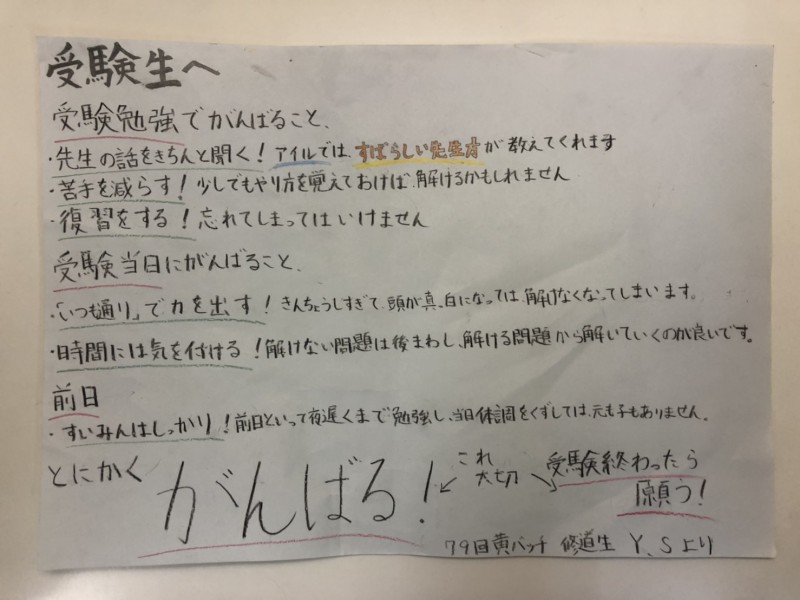 受験生へ
受験勉強でがんばること、
・先生の話をきちんと聞く！アイルでは、すばらしい先生方が教えてくれます
・苦手を減らす！少しでもやり方を覚えておけば、解けるかもしれません
・復習をする！忘れてしまってはいけません
受験当日にがんばること、
・「いつも通り」で力を出す！きんちょうしすぎて、頭が真、白になっては、解けなくなってしまいます。
・時間には気を付ける！解けない問題は後まわし、解ける問題から解いていくのが良いです。
前日
・すいみんはしっかり！前日といって夜遅くまで勉強し、当日体調をくずしては、元も子もありません。
とにかく がんばる！
これ大切
受験終わったら
願う！
79回黄バッチ 修道生 Y、Sより